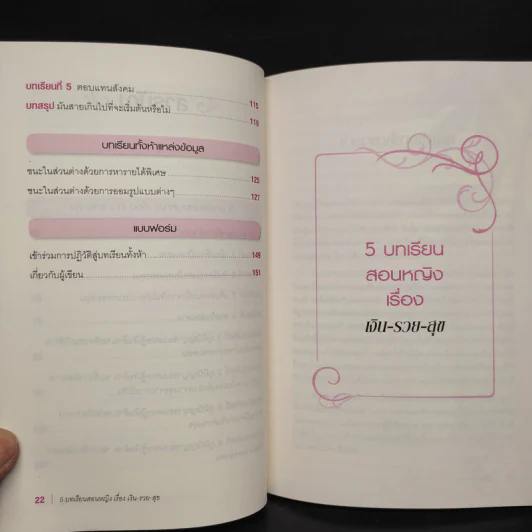 บทเรียนที่ 5 ตอบแทนสังคม 115
บทสรุป มันสายเกินไปที่จะเริ่มต้นหรือไม่ 119
บทเรียนทั้งห้าแหล่งข้อมูล
ชนะในส่วนต่างด้วยการหารายได้พิเศษ 125
ชนะในส่วนต่างด้วยการออมรูปแบบต่างๆ 127
แบบฟอร์ม
เข้าร่วมการปฏิวัติสู่บทเรียนทั้งห้า 149
เกี่ยวกับผู้เขียน 151
22 | 5 บทเรียนสอนหญิง เรื่อง เงิน-รวย-สุข
5 บทเรียน
สอนหญิง
เรื่อง
เงิน-รวย-สุข